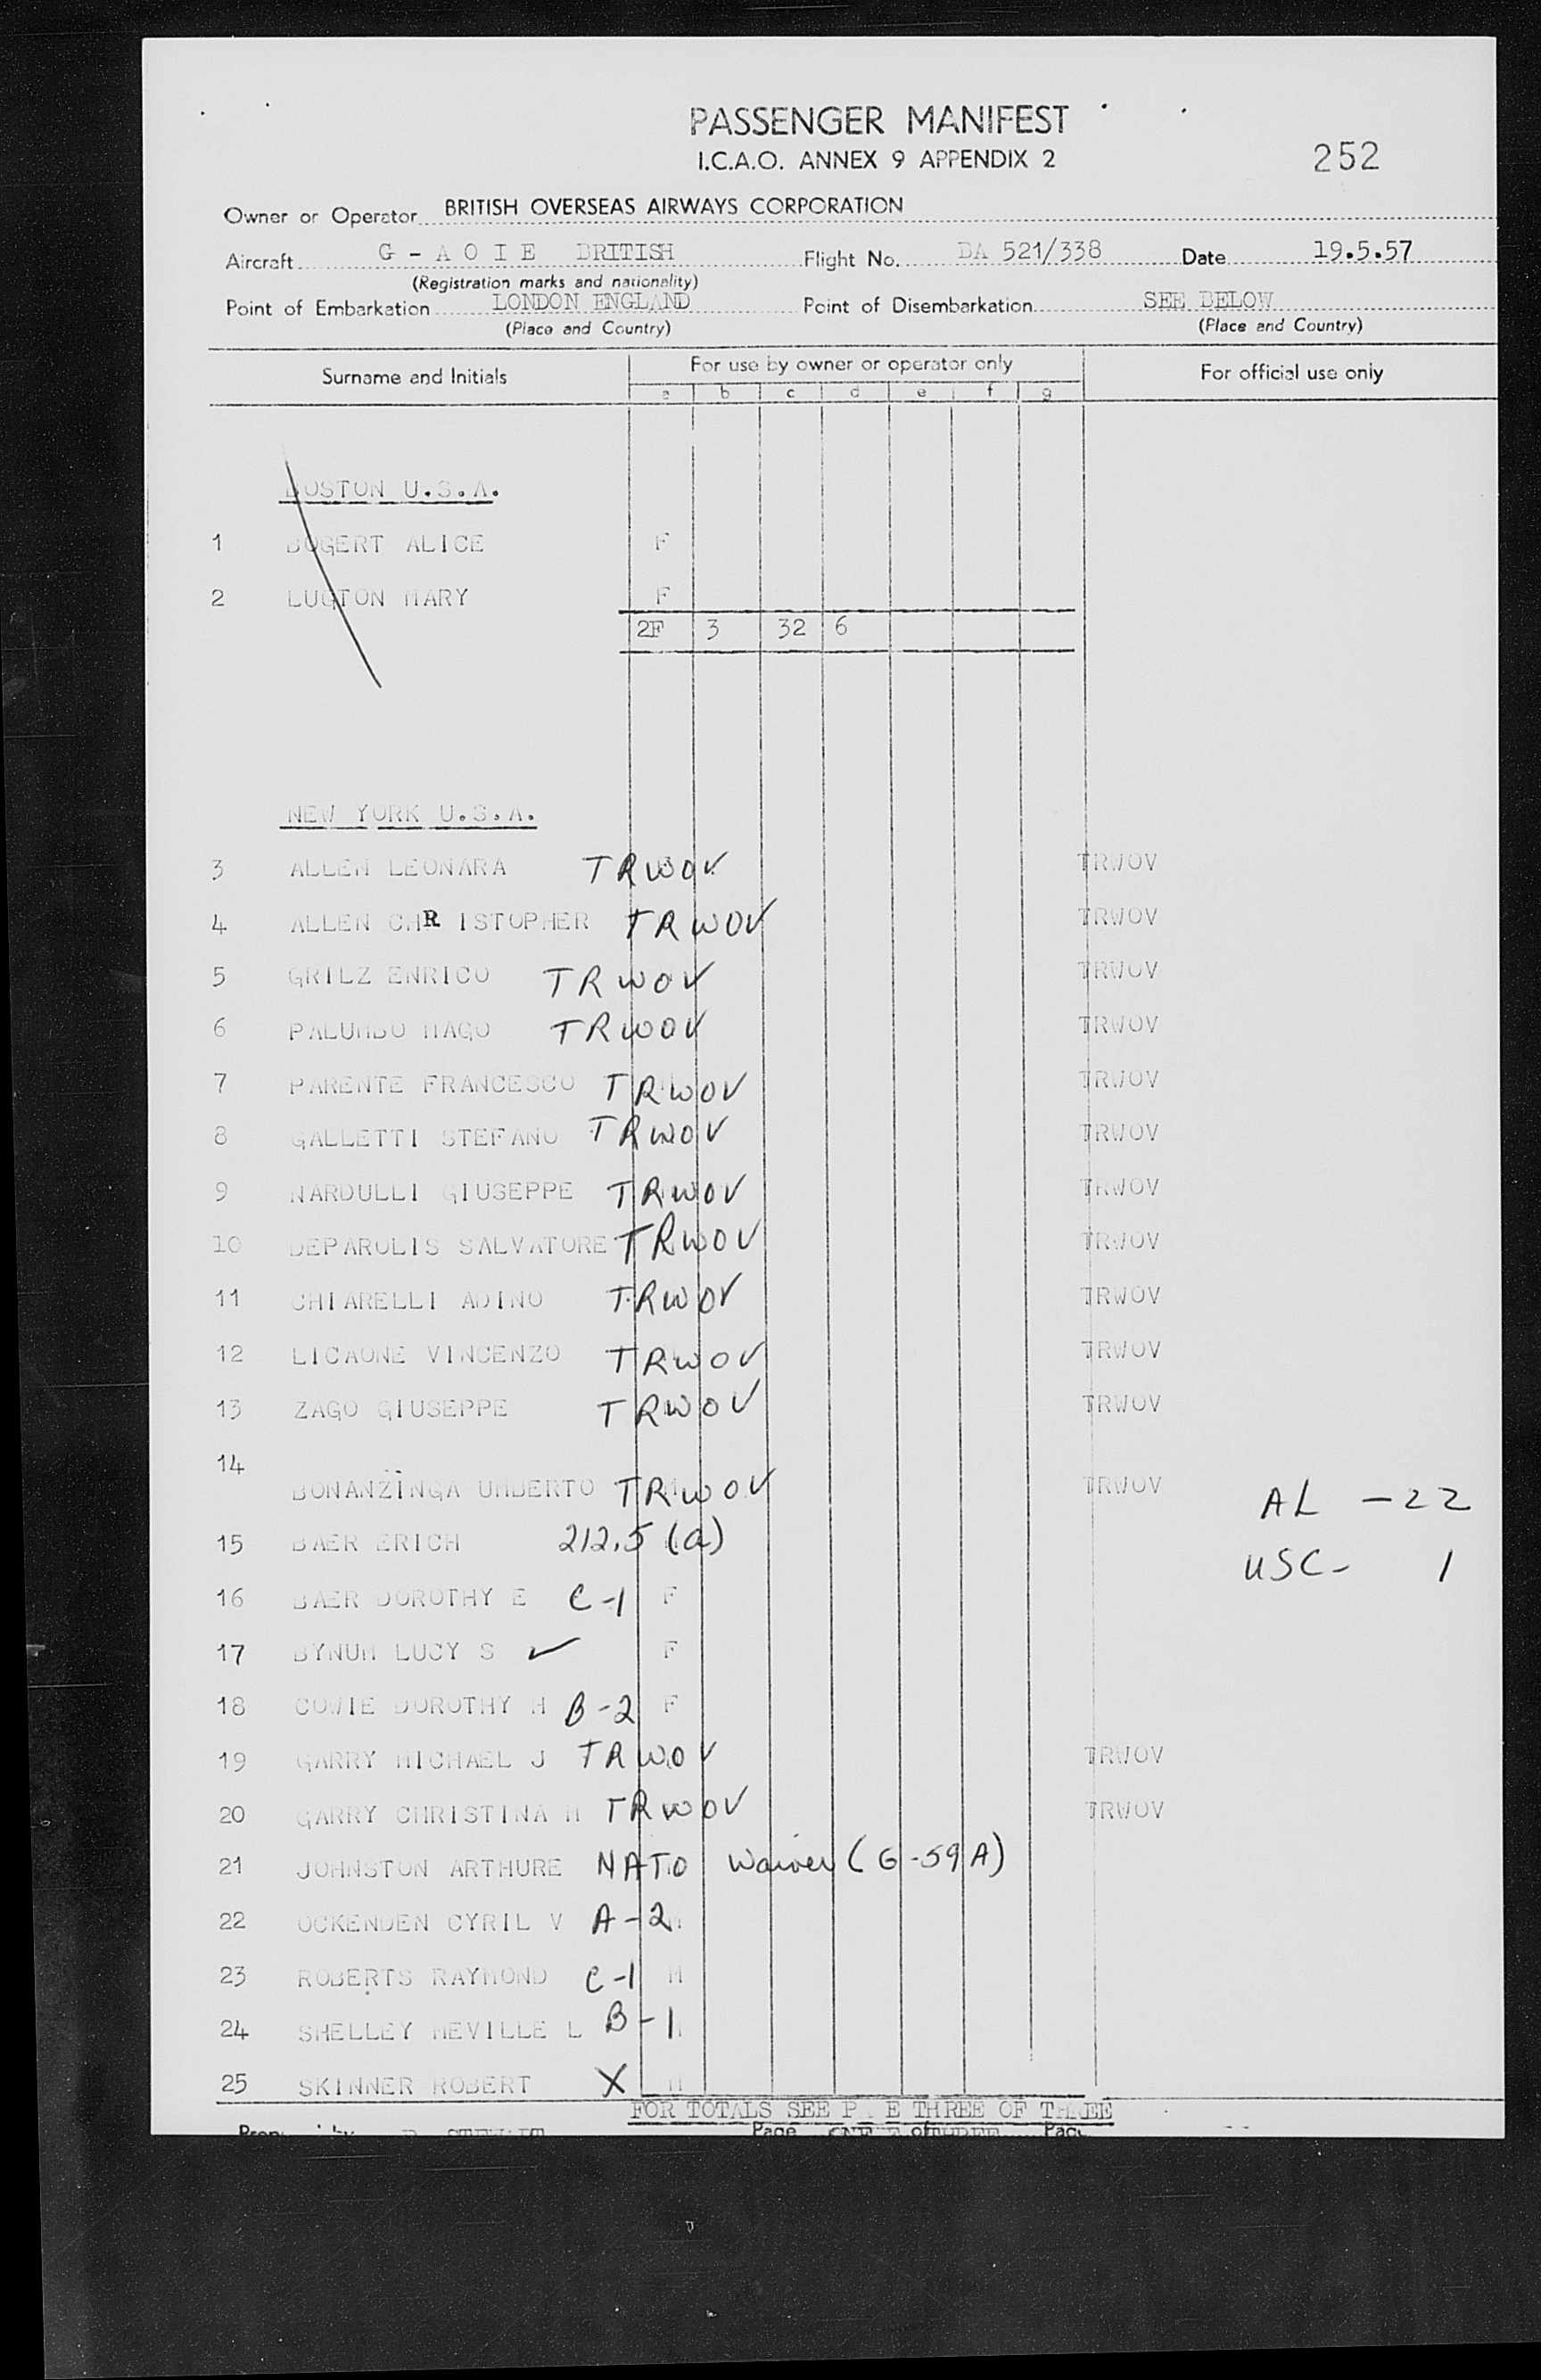 PASSENGER MANIFEST
I.C.A.O. ANNEX 9 APPENDIX 2
252
Owner or Operator BRITISH OVERSEAS AIRWAYS CORPORATION
Aircraft G - A O I E BRITISH Flight No. BA 521/338 Date 19.5.57
(Registration marks and nationality)
Point of Embarkation LONDON ENGLAND Point of Disembarkation SEE BELOW
(Place and Country) (Place and Country)
Surname and Initials For use by owner or operator only For official use only
a b c d e f g
BOSTON U.S.A.
1 BOGERT ALICE F
2 LUGTON MARY F
2F 3 32 6
NEW YORK U.S.A.
3 ALLEN LEONARA TRWOV TRWOV
4 ALLEN CHR ISTOPHER TRWOV TRWOV
5 GRILZ ENRICO TRWOV TRWOV
6 PALUMBO MAGO TRWOV TRWOV
7 PARENTE FRANCESCO TRWOV TRWOV
8 GALLETTI STEFANO TRWOV TRWOV
9 NARDULLI GIUSEPPE TRWOV TRWOV
10 DEPAROLIS SALVATORE TRWOV TRWOV
11 CHIARELLI ADINO TRWOV TRWOV
12 LICAONE VINCENZO TRWOV TRWOV
13 ZAGO GIUSEPPE TRWOV TRWOV
14
BONANZINGA UMBERTO TRWOV TRWOV AL - 22
15 BAER ERICH 212.5 (a)
USC - 1
16 BAER DOROTHY E C-1 F
17 BYNUM LUCY S ✓ F
18 COWIE DOROTHY H B-2 F
19 GARRY MICHAEL J TRWOV TRWOV
20 GARRY CHRISTINA M TRWOV TRWOV
21 JOHNSTON ARTHURE NATO Waiver (G-59A)
22 OCKENDEN CYRIL V A-2
23 ROBERTS RAYMOND C-1 M
24 SHELLEY NEVILLE L B-1
25 SKINNER ROBERT X M
FOR TOTALS SEE P E THREE OF THREE
Page ONE of THREE